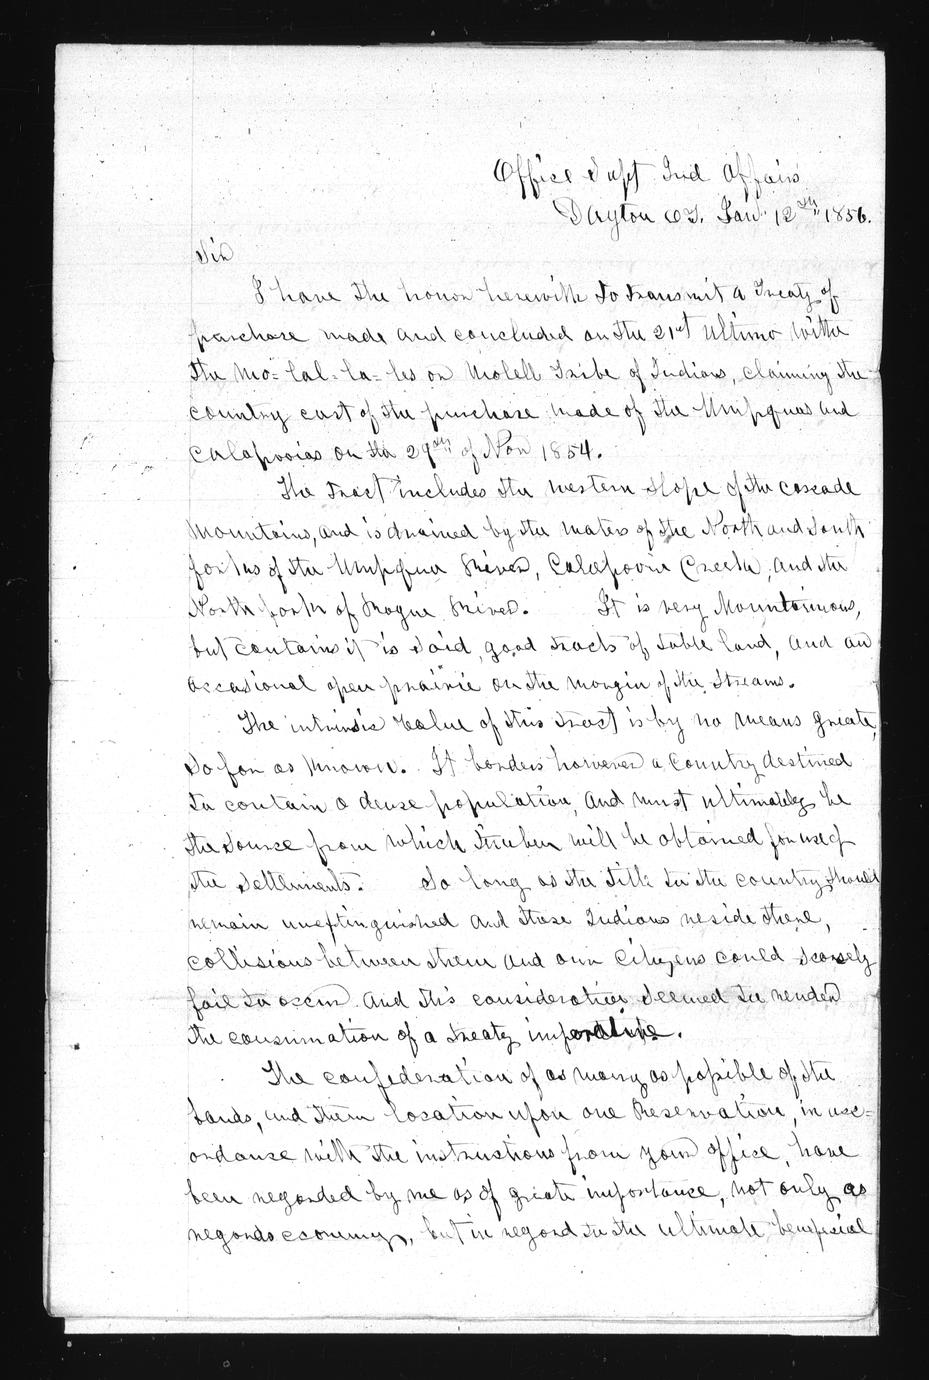 Office Supt Ind Affairs
Dayton O.T. Jan. 12th 1856.
Sir
I have the honor herewith to transmit a Treaty of
purchase made and concluded on the 21st Ultimo with
the Mo=lal=la=les or Molell Tribe of Indians, claiming the
country east of the purchase made of the Umpquas and
Calapooias on the 29th of Nov 1854.
The tract includes the western slope of the cascade
Mountains, and is drained by the waters of the North and South
forks of the Umpqua River, Calapooia Creek, and the
North fork of Rogue River. It is very Mountainous,
but contains it is said, good tracts of table land, and an
occasional open prairie on the margin of the Streams.
The intrinsic value of this tract is by no means great,
so far as known. It borders however a Country destined
to contain a dense population, and must ultimately be
the source from which timber will be obtained for use of
the settlements. So long as the title to the country should
remain unextinguished and these Indians reside there,
collisions between them and our Citizens could scarsely
fail to occur and this consideration seemed to render
the consumation of a treaty imperative.
The confederation of as many as possible of the
bands, and their location upon one Reservation, in acc=
ordance with the instructions from your office, have
been regarded by me as of great importance, not only as
regards economy, but in regard to the ultimate beneficial